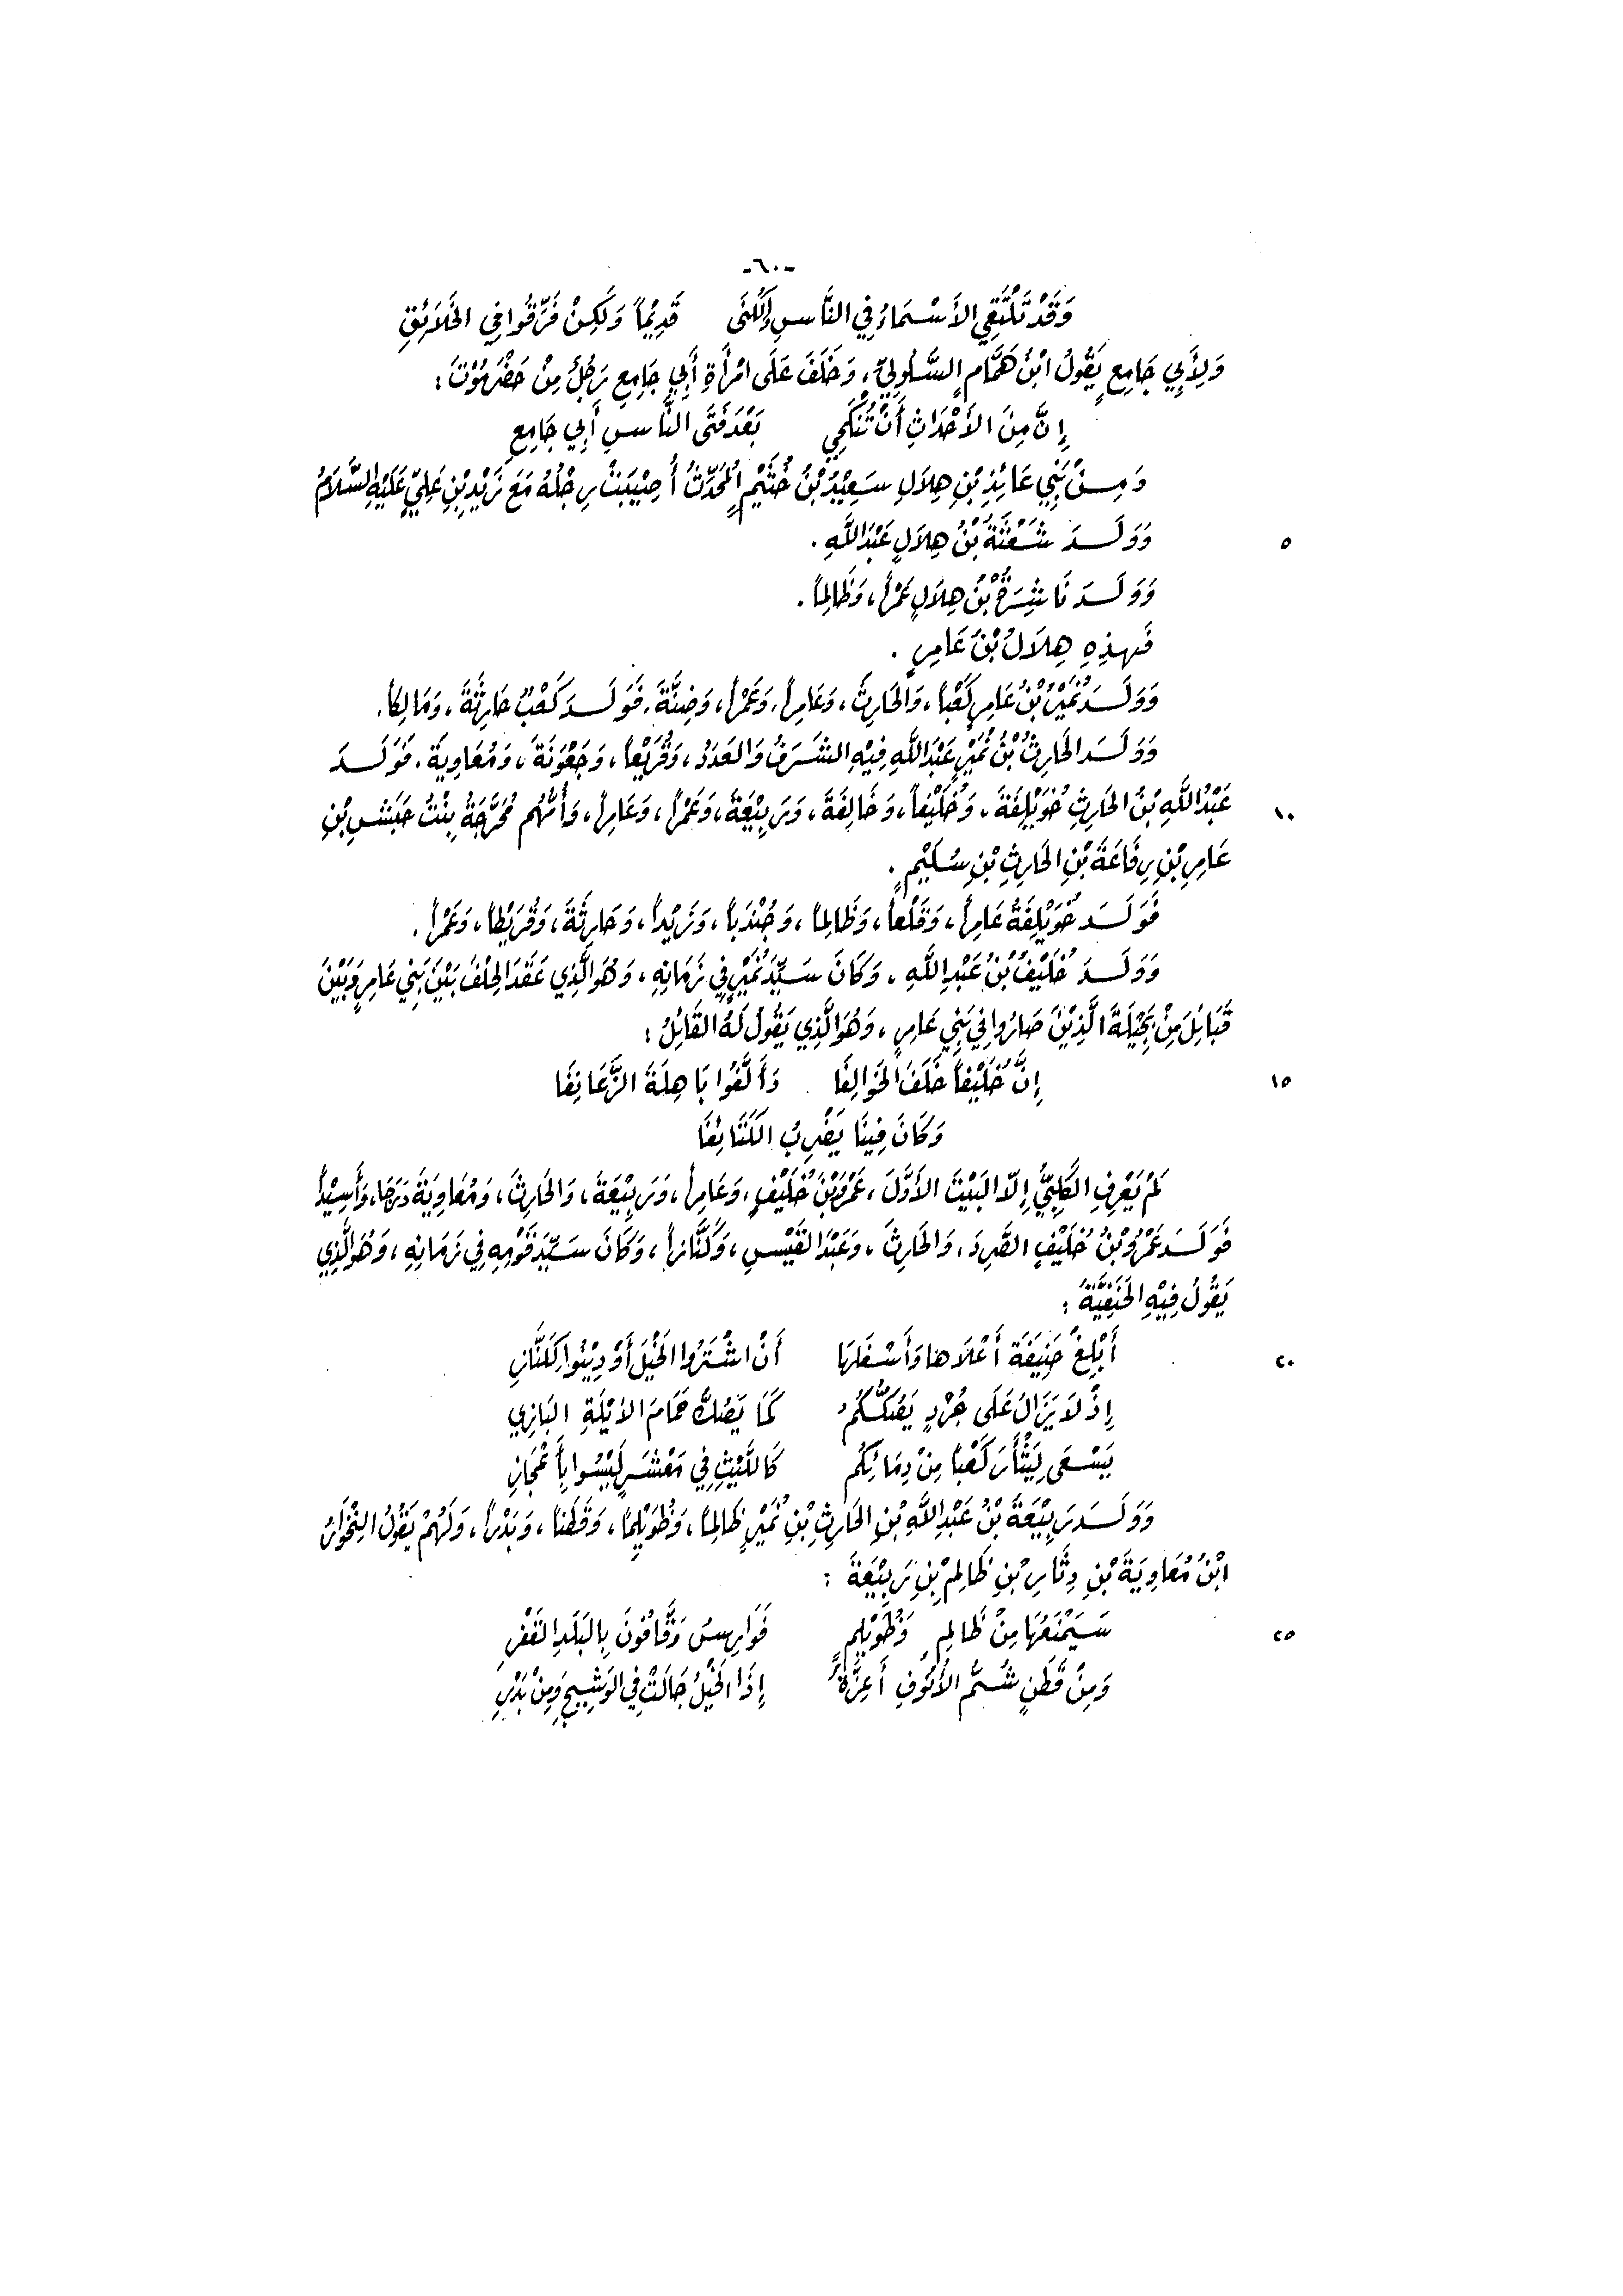 -٦٠-
وَقَدْ تَلْتَقِي الأَسْمَاءُ فِي النَّاسِ وَالكُنَى قَدِيْمَاً وَلَكِنْ فَرَّقُوا فِي الخَلاَئِقِ
وَلِأَبِي جَامِعٍ يَقُولُ ابْنُ هَمَّامٍ السَّلُولِيُّ، وَخَلَفَ عَلَى امْرَأَةِ أَبِي جَامِعٍ رَجُلٌ مِنْ حَضْرَمُوْتَ:
إِنَّ مِنَ الأَحْدَاثِ أَنْ تُنْكَحِي بَعْدَ فَتَى النَّاسِ أَبِي جَامِعِ
وَمِنْ بَنِي عَائِذِ بْنِ هِلاَلٍ سَعِيْدُ بْنُ خُثَيْمٍ المُحَدِّثُ أُصِيْبَتْ رِجْلُهُ مَعَ زَيْدِ بْنِ عَلِيٍّ عَلَيْهِ السَّلاَمُ
٥ وَوَلَدَ شَعْثَةُ بْنُ هِلاَلٍ عَبْدَ اللَّهِ.
وَوَلَدَ نَاشِرَةُ بْنُ هِلاَلٍ عَمْرَاً، وَظَالِمَاً.
فَهذِهِ هِلاَلُ بْنُ عَامِرٍ.
وَوَلَدَ نُمَيْرُ بْنُ عَامِرٍ كَعْبَاً، وَالحَارِثَ، وَعَامِرَاً، وَعَمْرَاً، وَضِنَّةَ. فَوَلَدَ كَعْبٌ حَارِثَةَ، وَمَالِكَاً.
وَوَلَدَ الحَارِثُ بْنُ نُمَيْرٍ عَبْدَ اللَّهِ فِيْهِ الشَّرَفُ وَالعَدَدُ، وَقُرَيْعَاً، وَجَعْوَنَةَ، وَمُعَاوِيَةَ. فَوَلَدَ
١٠ عَبْدُ اللَّهِ بْنُ الحَارِثِ خُوَيْلِفَةَ، وَخُلَيْفَاً، وَخَالِفَةَ، وَرَبِيْعَةَ، وَعَمْرَاً، وَعَامِرَاً، وَأُمُّهُم مُحَرَّجَةُ بِنْتُ حَبَشِ بْنِ
عَامِرِ بْنِ رِفَاعَةَ بْنِ الحَارِثِ بْنِ سُلَيْمٍ.
فَوَلَدَ خُوَيْلِفَةُ عَامِرَاً، وَقَلْعَاً، وَظَالِمَاً، وَجُنْدَبَاً، وَزَيْدَاً، وَحَارِثَةَ، وَقُرَيْطَاً، وَعَمْرَاً.
وَوَلَدَ خُلَيْفُ بْنُ عَبْدِ اللَّهِ، وَكَانَ سَيِّدَ نُمَيْرٍ فِي زَمَانِهِ، وَهُوَ الَّذِي عَقَدَ الحِلْفَ بَيْنَ بَنِي عَامِرٍ وَبَيْنَ
قَبَائِلَ مِنْ بَجِيْلَةَ الَّذِيْنَ صَارُوا فِي بَنِي عَامِرٍ، وَهُوَ الَّذِي يَقُولُ لَهُ القَائِلُ:
١٥ إِنَّ خُلَيْفَاً خَلَفَ الخَوَالِفَا وَأَلَّفُوا بَاهِلَةَ الزَّعَانِفَا
وَكَانَ فِينَا يَضْرِبُ الكَتَائِفَا
لَمْ يَعْرِفِ الكَلْبِيُّ إِلاّ البَيْتَ الأَوَّلَ، عَمْرَو بْنَ خُلَيْفٍ، وَعَامِرَاً، وَرَبِيْعَةَ، وَالحَارِثَ، وَمُعَاوِيَةَ دَرَجَا، وَأُسَيْدَاً
فَوَلَدَ عَمْرُو بْنُ خُلَيْفٍ الصَّرِدَ، وَالحَارِثَ، وَعَبْدَ القَيْسِ، وَكَنَّازَاً، وَكَانَ سَيِّدَ قَوْمِهِ فِي زَمَانِهِ، وَهُوَ الَّذِي
يَقُولُ فِيْهِ الحَنَفِيَّةُ:
٢٠ أَبْلِغْ حَنِيفَةَ أَعْلاَها وَأَسْفَلَهَا أَنْ اشْتَرُوا الخَيْلَ أَوْ دِيْنُوا لِكَنَّازِ
إِذْ لاَ يَزَالُ عَلَى جُرْدٍ يَصُكُّكُمُ كَمَا يَصُكُّ حَمَامَ الأَيْكَةِ البَازِي
يَسْعَى لِيَثْأَرَ كَعْبَاً مِنْ دِمَائِكُم كَاللَّيْثِ فِي مَعْشَرٍ لَيْسُوا بِأَعْجَازِ
وَوَلَدَ رَبِيْعَةُ بْنُ عَبْدِ اللَّهِ بْنِ الحَارِثِ بْنِ نُمَيْرٍ ظَالِمَاً، وَظُوَيْلِمَاً، وَقَطَنَاً، وَبَدْرَاً، وَلَهُمْ يَقُولُ النِّخْوَارُ
ابْنُ مُعَاوِيَةَ بْنِ دِثَارِ بْنِ ظَالِمِ بْنِ رَبِيْعَةَ:
٢٥ سَيَمْنَعُهَا مِنْ ظَالِمٍ وَظُوَيْلِمٍ فَوَارِسُ وَقَّافُونَ بِالبَلَدِ القَفْرِ
وَمِنْ قَطَنٍ شُمُّ الأُنُوفِ أَعِزَّةٌ إِذَا الخَيْلُ جَالَتْ فِي الوَشِيجِ وَمِنْ بَدْرِ